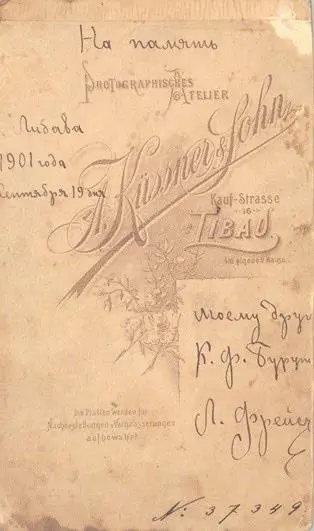 На память
Photographisches
Atelier
Либава
1901 года
Сентября 19 дня
A. Küssner & Sohn
Kauf-Strasse
16
LIBAU.
Im eigenen Hause.
Моему друг
К. Ф.
Л. Фрейс
Die Platten werden für
Nachbestellungen u. Vergrösserungen
aufbewahrt
№ 37349